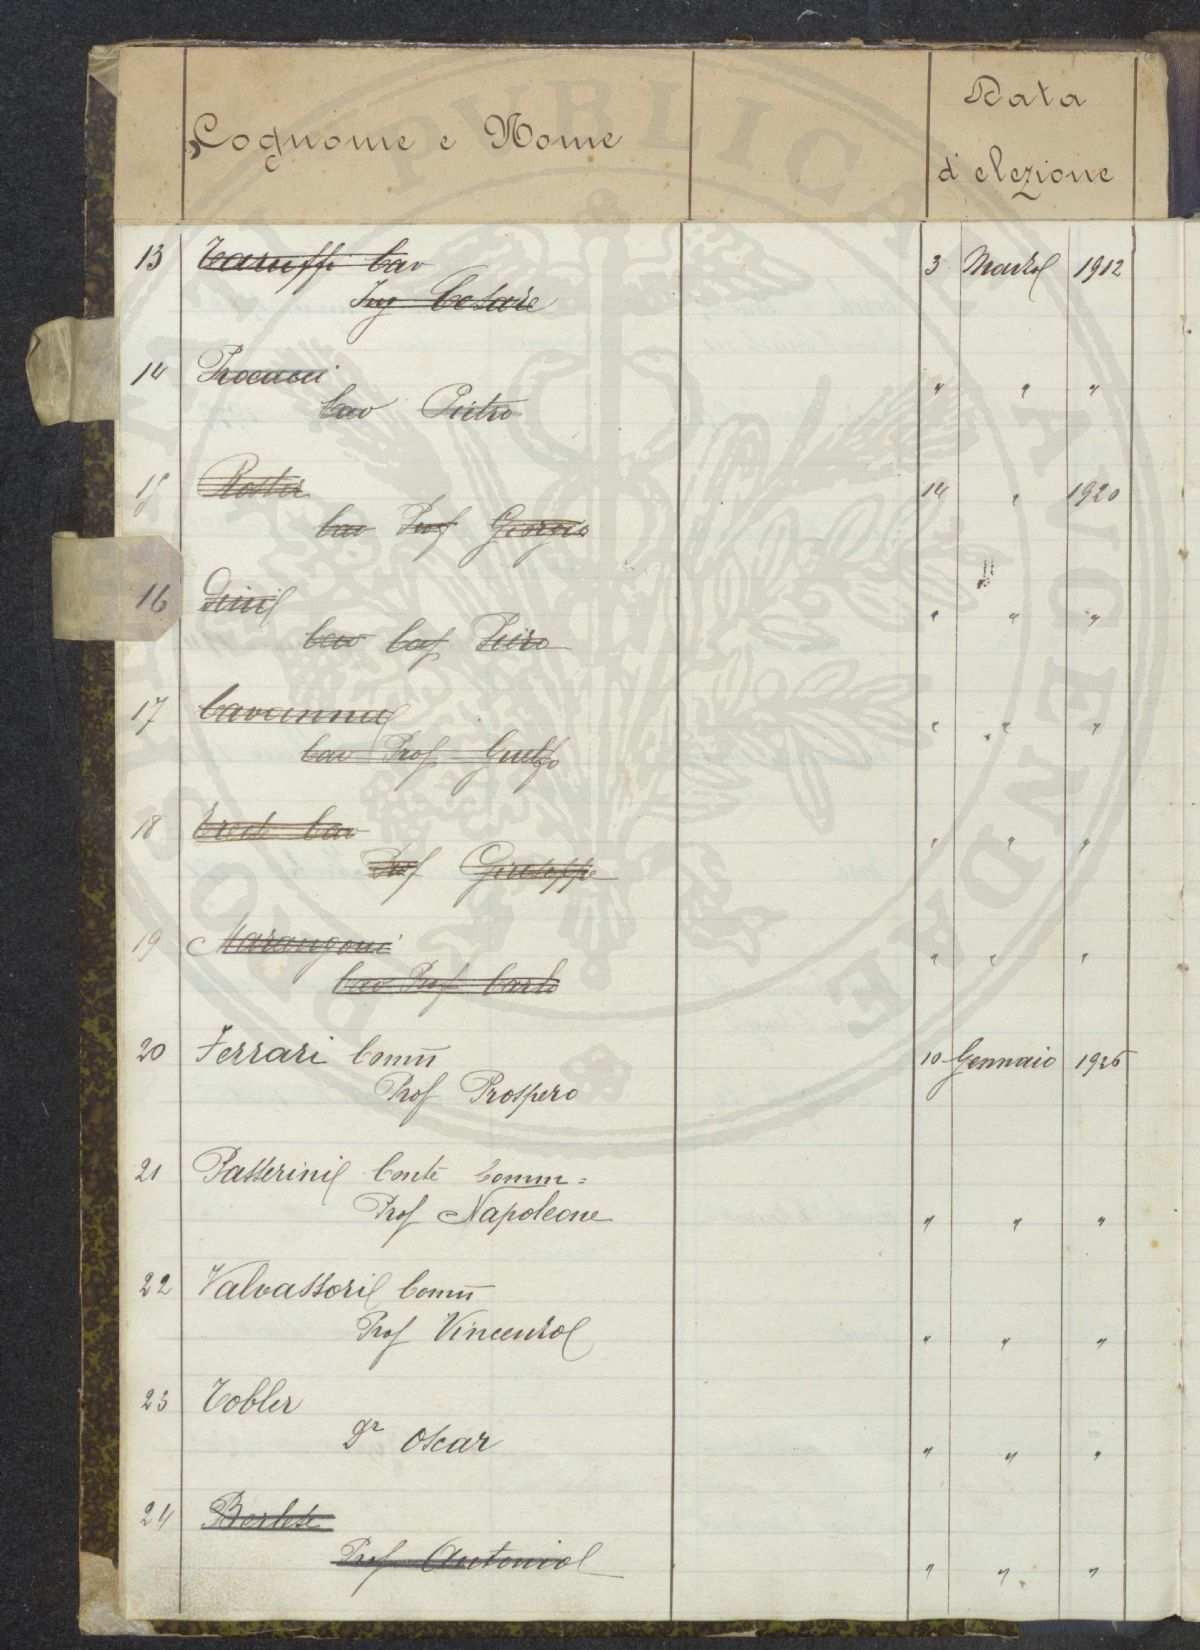 Cognome e Nome
Data
d'elezione
13 Taruffi Cav 3 Marzo 1912
Ing Cesare
14 Procacci
Cav Pietro " " "
15 Roster 14 " 1920
Cav Prof Giorgio
16
Cav Piero " " "
17 Cavanna
Cav Prof Guelfo " " "
18 Erede Cav
Prof Giuseppe " " "
19 Marangoni
Cav Prof Carlo " " "
20 Ferrari Comm 10 Gennaio 1926
Prof Prospero
21 Passerini Conte Comm=
Prof Napoleone " " "
22 Valvassori Comm
Prof Vincenzo " " "
23 Tobler
Dr Oscar " " "
24 Berlese
Prof Antonio " " "
PUBLICAE